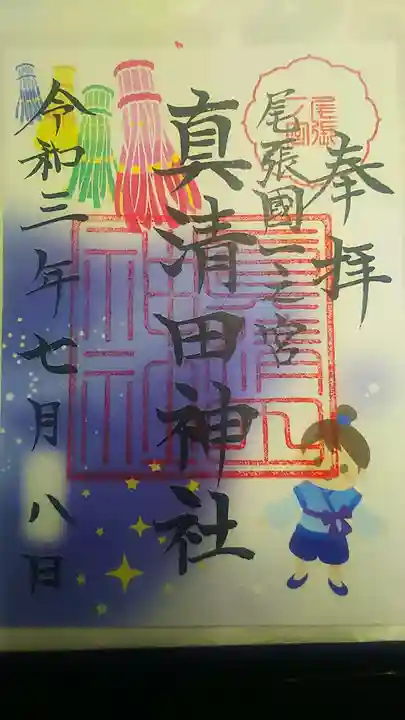 奉拝
尾張國一之宮
真清田神社
令和三年七月八日